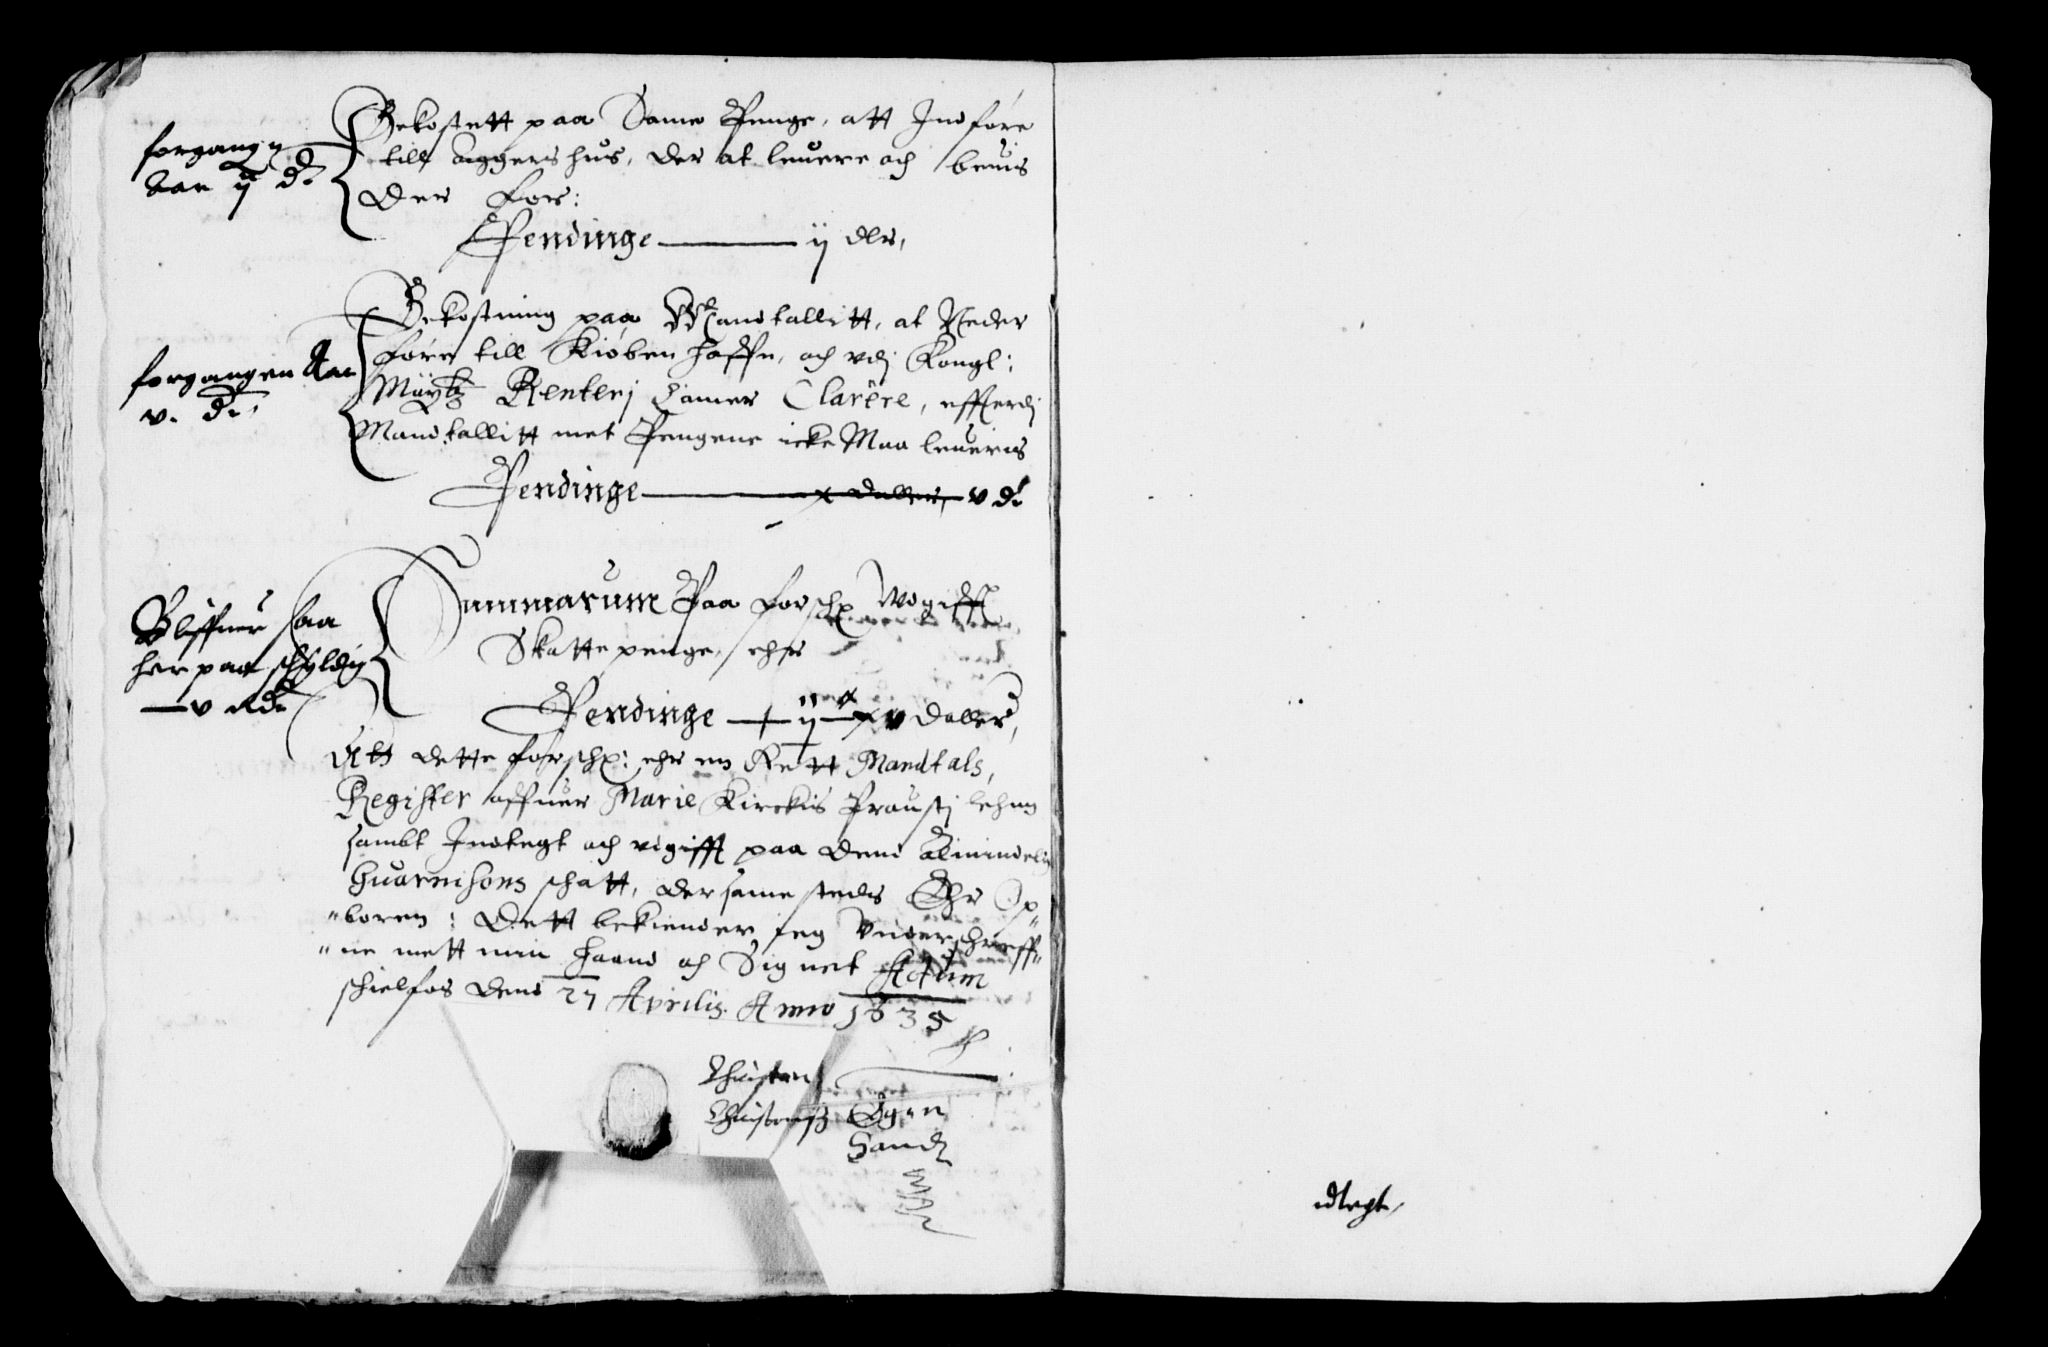 forgangen
Aar ij dr
Bekostett paa Same Penge, att Indføre
till Aggershus, der at leuere och beuis
der for:
Pendinge ——— ij dlr,
forgangen Aar
v. dr
Bekostning paa Mandtallitt, at Neder
føre till Kiøbenhaffn, och vdj Kongl:
Maytz Renterj Camer Clarere, effterdj
Mandtallitt met Pengene icke Maa leueris
Pendinge ——— x daller, v dr
Bliffuer saa
her paa schyldig
— v Rdr
Summarum Paa forsch: Vdgifft
Skattepenge, ehr
Pendinge — ij — xv Daller,
Att dette forsch: ehr en Rett Mandtals,
Register offuer Marie Kirckis Proustj lehen
sambt Indtegt och vdgifft paa dend Almindelig
Guarnisons schatt, der samestedz Ehr Op„
„boren: Dett bekiender jeg Vnderschreff„
„ne mett min Haand och Signett Actum
schielfos dend 27 Aprilis Anno 1635
Christen
Christensß Egen
Handt
idtegt,